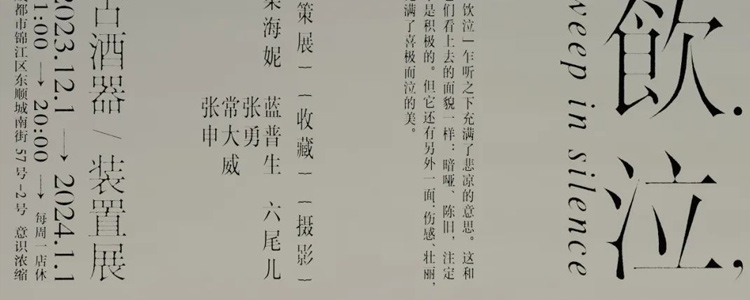 飲泣，
weep in silence
飲泣一乍听之下充满了悲凉的意思。这和
们看上去的面貌一样：暗哑、陈旧，注定
是积极的。但它还有另外一面：伤感、壮丽，
满了喜极而泣的美。
策展）（收藏）（摄影）
海妮 蓝普生 六尾儿
张勇
常大威
张申
古酒器 / 装置展
2023.12.1 → 2024.1.1
1:00 → 20:00 → 每周一店休
都市锦江区东顺城南街57号-2号 意识浓缩